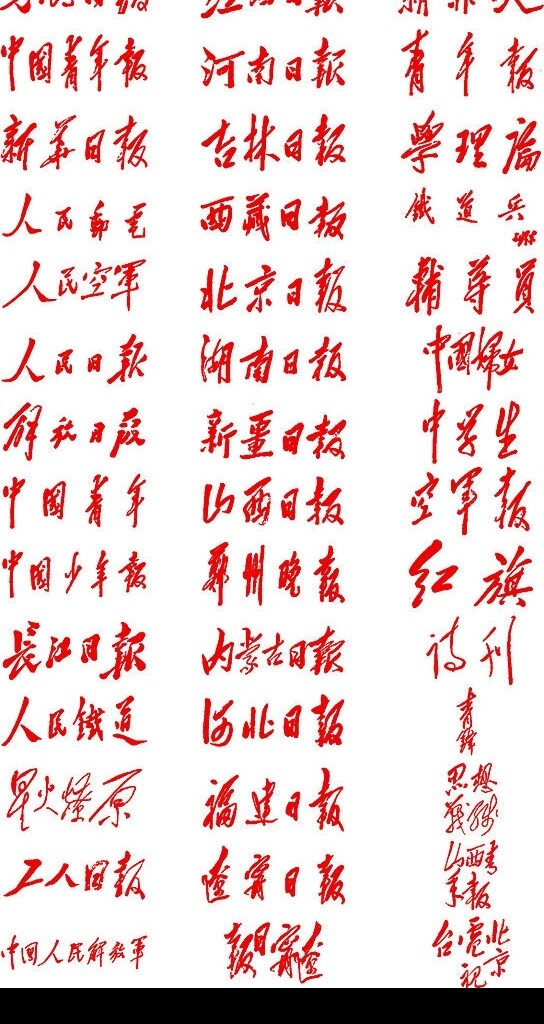 中國青年報
新華日報
人民郵電
人民空軍
人民日報
解放日报
中國青年
中國少年報
長江日報
人民鐵道
星火燎原
工人日報
中國人民解放軍
河南日報
吉林日報
西藏日報
北京日報
湖南日报
新疆日報
山西日报
鄭州晚報
内蒙古日報
河北日報
福建日報
遼寧日報
遼寧日報
青年報
學理論
鐵道兵
輔導員
中國婦女
中学生
空軍報
红旗
詩刊
青鋒
思想
戰線
山西青
年報
北京
電視台